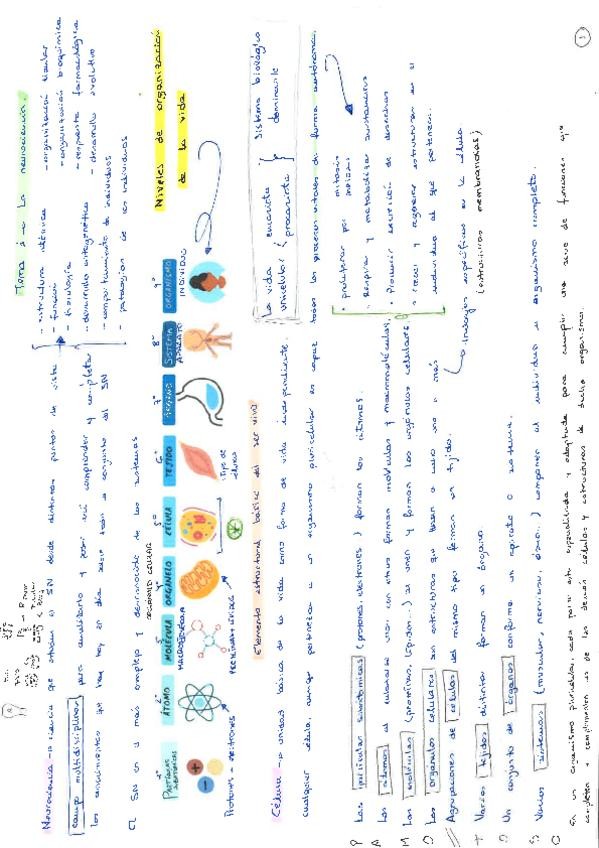 Tema 1 → La neurociencia.
Neurociencia → ciencia que estudia el SN desde distintos puntos de vista
- estructura
- función
- fisiología
- desarrollo ontogenético
- comportamiento de individuos
- patologías de los individuos
- organización tisular
- organización bioquímica
- respuesta farmacológica
- desarrollo evolutivo
campo multidisciplinar para estudiarlo y poder así comprender y completar
los conocimientos que hay hoy en día sobre todo el conjunto del SN
El SN es el más complejo y desconocido de los sistemas
Niveles de organización
de la vida
1º
PARTÍCULAS
SUBATÓMICAS
2º
ÁTOMO
3º
MOLÉCULA
MACROMOLÉCULA
4º
ORGANELO
ORGÁNULO CELULAR
5º
CÉLULA
6º
TEJIDO
7º
ÓRGANO
8º
SISTEMA
APARATO
9º
ORGANISMO
INDIVIDUO
Protones - neutrones
Elemento estructural básico del ser vivo
Célula → unidad básica de la vida como forma de vida independiente.
La vida
unicelular
eucariota
procariota
Sistema biológico
dominante
cualquier célula, aunque pertenezca a un organismo pluricelular es capaz todos los procesos vitales de forma autónoma.
• proliferar por
mitosis
meiosis
• Respirar y metabolizar sustancias
• Producir excreción de desechos
• crecer y regenerar estructuras en el
individuo al que pertenecen.
→ trabajos específicos en la célula
(estructuras membranosas)
P Las partículas subatómicas (protones, electrones) forman los átomos.
A Los átomos al enlazarse unos con otros forman moléculas y macromoléculas.
M Las moléculas (proteínas, lípidos...) se unen y forman los orgánulos celulares.
O Los orgánulos celulares son estructuras que llevan a cabo uno o más
Agrupaciones de células del mismo tipo forman un tejido.
T Varios tejidos distintos forman un órgano
O Un conjunto de órganos conforma un aparato o sistema.
S Varios sistemas (muscular, nervioso, óseo...) componen al individuo u organismo completo.
O En un organismo pluricelular, cada parte está especializada y adaptada para cumplir una serie de funciones que
completan y complementan las de las demás células y estructuras de dicho organismo.
1